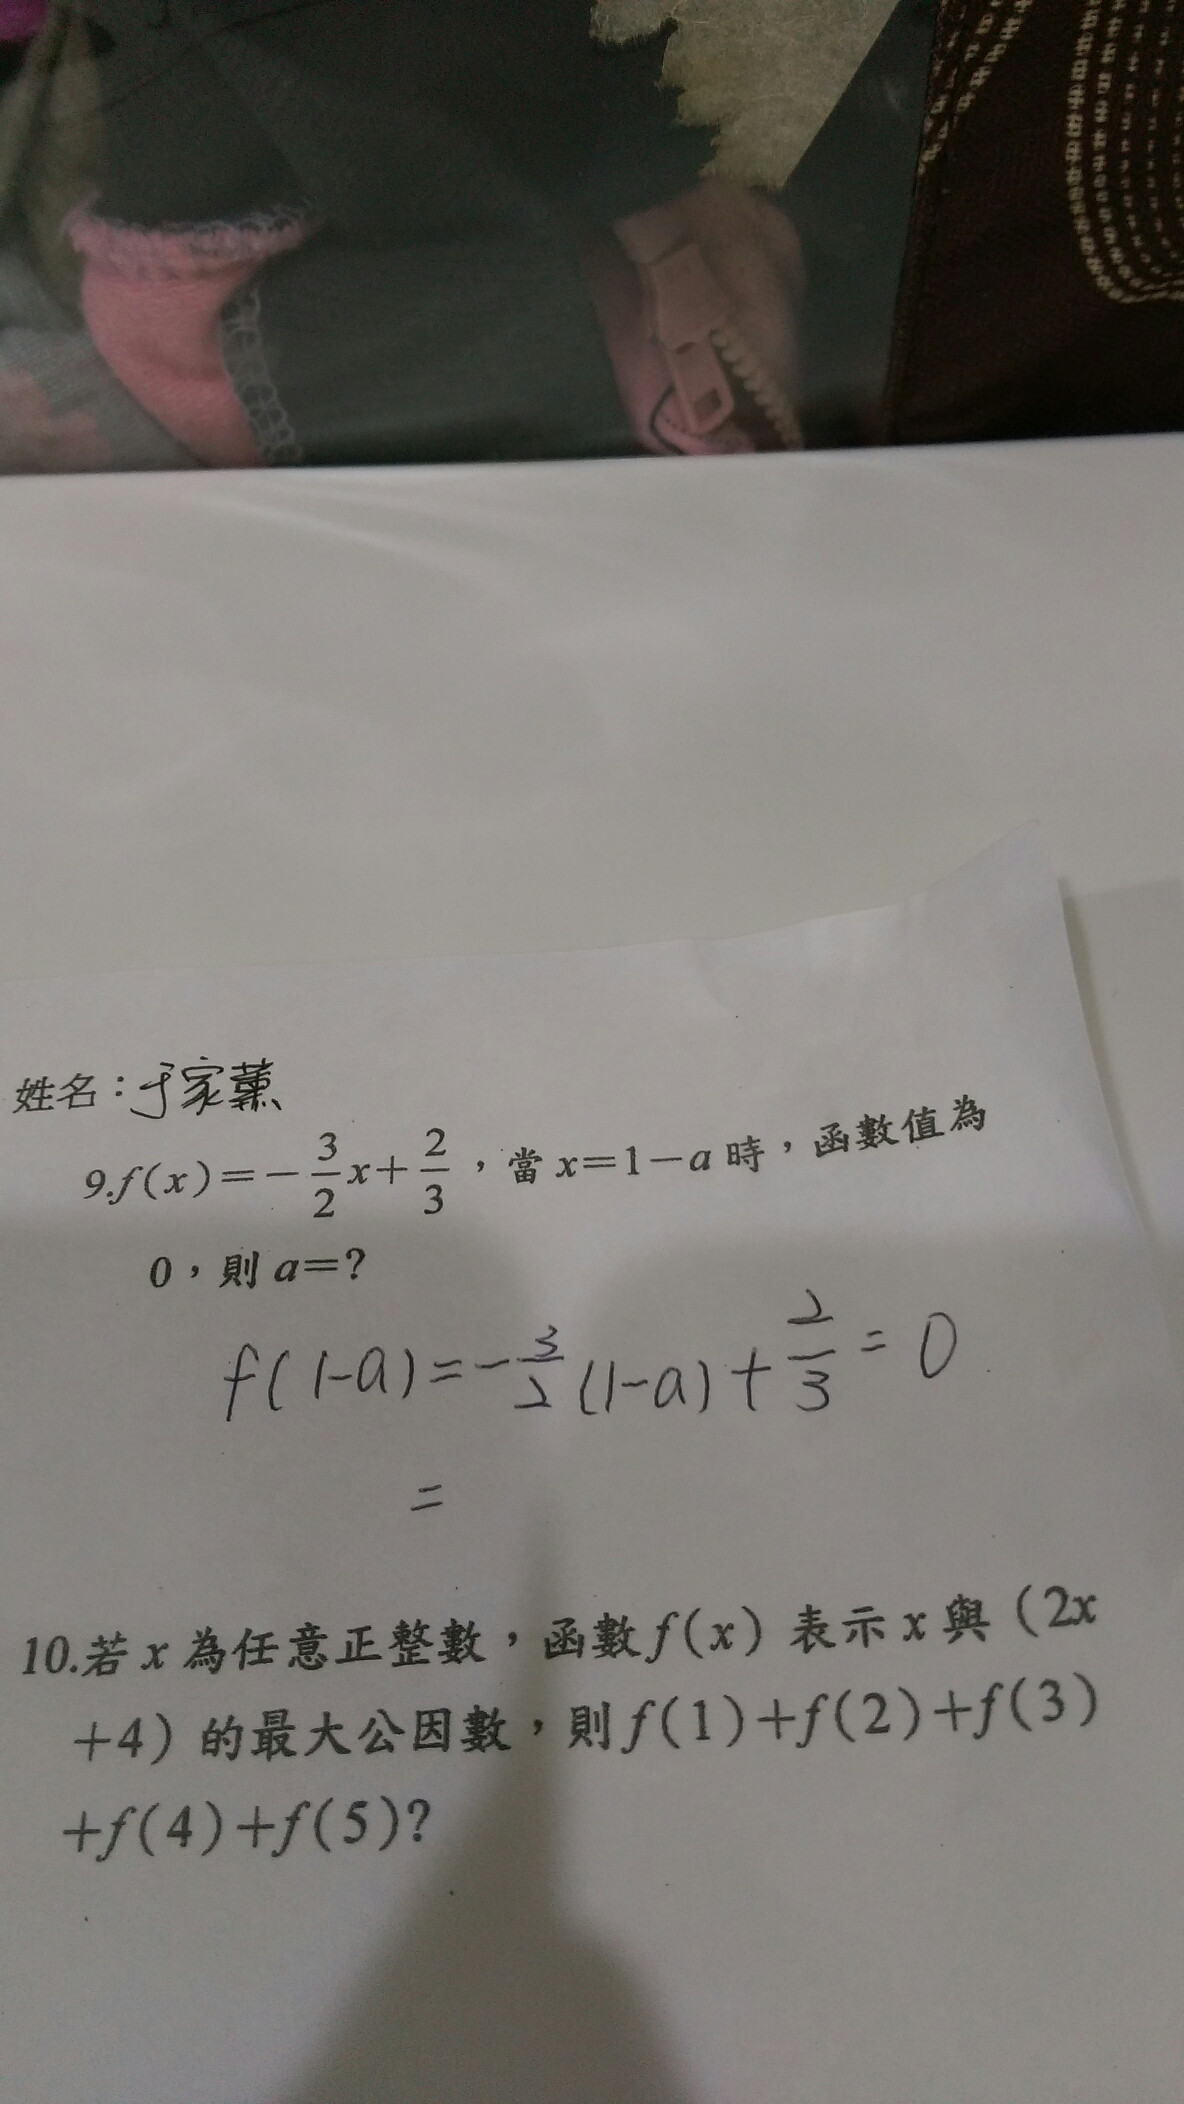 姓名：于家薰
9.f(x)=-3/2x+2/3，當x=1-a時，函數值為
0，則a=?
f(1-a)=-3/2(1-a)+2/3=0
=
10.若x為任意正整數，函數f(x)表示x與(2x
+4)的最大公因數，則f(1)+f(2)+f(3)
+f(4)+f(5)?